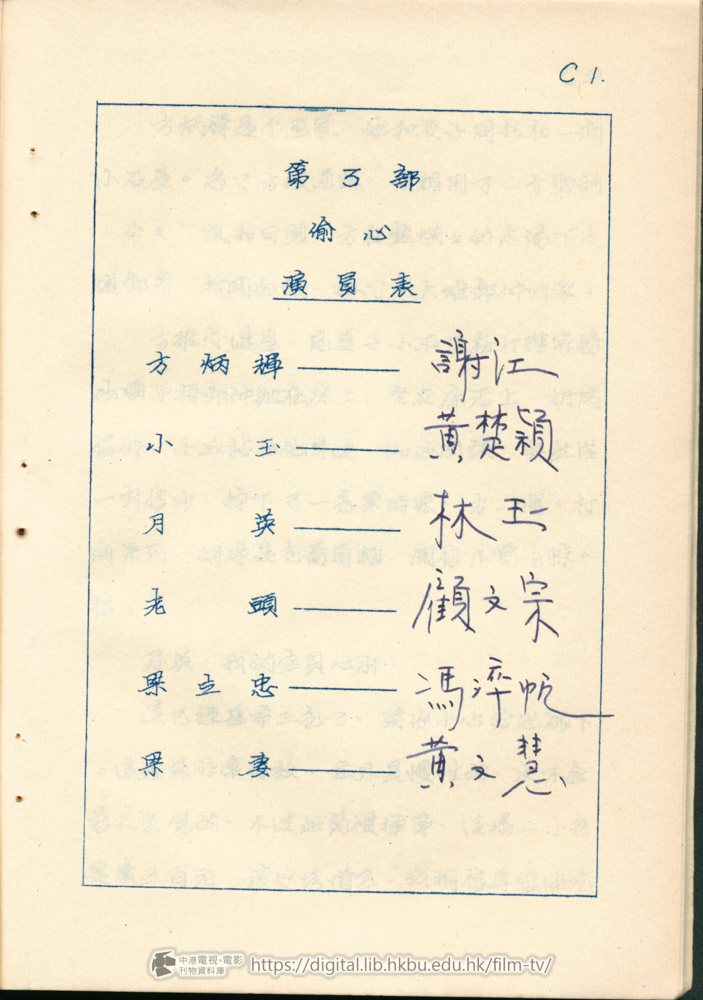 C 1.
第3部
偷心
演員表
方炳輝——謝江
小玉——黃楚穎
月英——林玉
老頭——顧文宗
梁立忠——馮淬帆
梁妻——黃文慧
中港電視·電影
刊物資料庫
https://digital.lib.hkbu.edu.hk/film-tv/